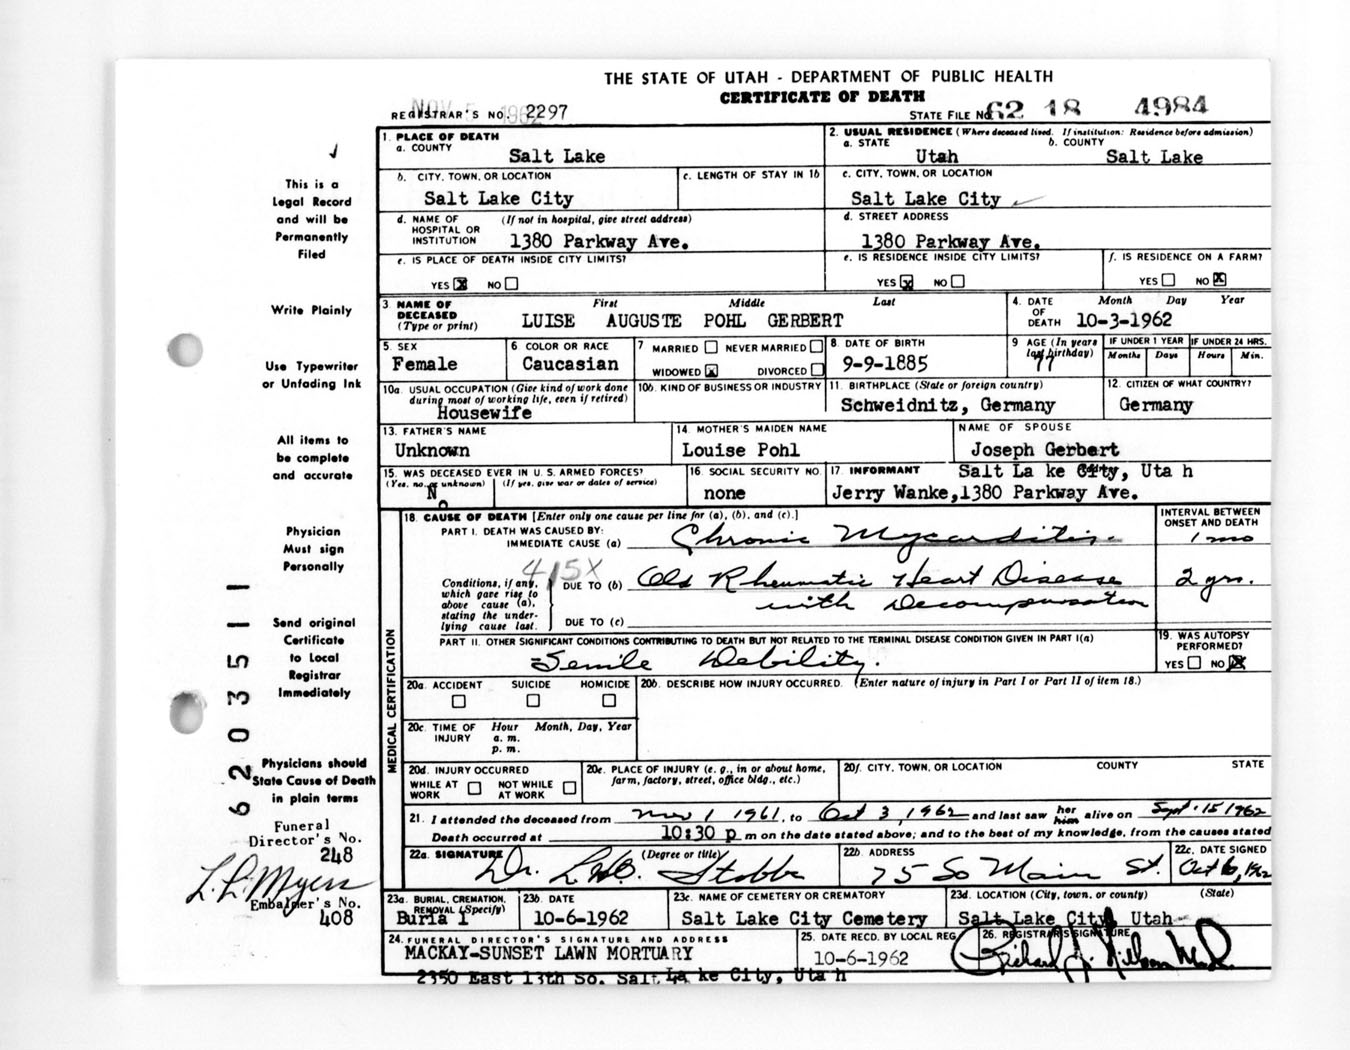 THE STATE OF UTAH - DEPARTMENT OF PUBLIC HEALTH
CERTIFICATE OF DEATH
NOV 5 1962
REGISTRAR'S NO. 2297
STATE FILE NO. 62 18 4984
This is a
Legal Record
and will be
Permanently
Filed
Write Plainly
Use Typewriter
or Unfading Ink
All items to
be complete
and accurate
Physician
Must sign
Personally
Send original
Certificate
to Local
Registrar
Immediately
Physicians should
State Cause of Death
in plain terms
Funeral
Director's No.
248
L. L. Myers
Embalmer's No.
408
1. PLACE OF DEATH
a. COUNTY
Salt Lake
2. USUAL RESIDENCE (Where deceased lived. If institution: Residence before admission)
a. STATE b. COUNTY
Utah Salt Lake
b. CITY, TOWN, OR LOCATION
Salt Lake City
c. LENGTH OF STAY IN 1b
c. CITY, TOWN, OR LOCATION
Salt Lake City
d. NAME OF HOSPITAL OR INSTITUTION (If not in hospital, give street address)
1380 Parkway Ave.
d. STREET ADDRESS
1380 Parkway Ave.
e. IS PLACE OF DEATH INSIDE CITY LIMITS?
YES X NO
e. IS RESIDENCE INSIDE CITY LIMITS?
YES X NO
f. IS RESIDENCE ON A FARM?
YES NO X
3. NAME OF DECEASED (Type or print) First Middle Last
LUISE AUGUSTE POHL GERBERT
4. DATE OF DEATH Month Day Year
10-3-1962
5. SEX
Female
6. COLOR OR RACE
Caucasian
7 MARRIED NEVER MARRIED
WIDOWED X DIVORCED
8. DATE OF BIRTH
9-9-1885
9 AGE (In years last birthday)
77
IF UNDER 1 YEAR IF UNDER 24 HRS.
Months Days Hours Min.
10a. USUAL OCCUPATION (Give kind of work done during most of working life, even if retired)
Housewife
10b. KIND OF BUSINESS OR INDUSTRY
11. BIRTHPLACE (State or foreign country)
Schweidnitz, Germany
12. CITIZEN OF WHAT COUNTRY?
Germany
13. FATHER'S NAME
Unknown
14. MOTHER'S MAIDEN NAME
Louise Pohl
NAME OF SPOUSE
Joseph Gerbert
15. WAS DECEASED EVER IN U. S. ARMED FORCES?
(Yes, no, or unknown) (If yes, give war or dates of service)
No
16. SOCIAL SECURITY NO.
none
17. INFORMANT Salt La ke City, Uta h
Jerry Wanke, 1380 Parkway Ave.
MEDICAL CERTIFICATION
18. CAUSE OF DEATH [Enter only one cause per line for (a), (b), and (c).]
INTERVAL BETWEEN ONSET AND DEATH
PART I. DEATH WAS CAUSED BY:
IMMEDIATE CAUSE (a) Chronic Mycarditis. 1 mo
415X
Conditions, if any, which gave rise to above cause (a), stating the under-lying cause last.
DUE TO (b) Old Rheumatic Heart Disease 2 yrs.
with Decompensation
DUE TO (c)
PART II. OTHER SIGNIFICANT CONDITIONS CONTRIBUTING TO DEATH BUT NOT RELATED TO THE TERMINAL DISEASE CONDITION GIVEN IN PART I(a)
Senile Debility.
19. WAS AUTOPSY PERFORMED?
YES NO X
20a. ACCIDENT SUICIDE HOMICIDE
20b. DESCRIBE HOW INJURY OCCURRED. (Enter nature of injury in Part I or Part II of item 18.)
20c. TIME OF INJURY Hour Month, Day, Year
a. m.
p. m.
20d. INJURY OCCURRED
WHILE AT WORK NOT WHILE AT WORK
20e. PLACE OF INJURY (e. g., in or about home, farm, factory, street, office bldg., etc.)
20f. CITY, TOWN, OR LOCATION COUNTY STATE
21. I attended the deceased from Nov 1 1961, to Oct 3, 1962 and last saw her him alive on Sept. 15 1962
Death occurred at 10:30 p m on the date stated above; and to the best of my knowledge, from the causes stated
22a. SIGNATURE (Degree or title)
Dr. Stobbe
22b. ADDRESS
75 So Main St.
22c. DATE SIGNED
Oct 6, 1962
23a. BURIAL, CREMATION, REMOVAL (Specify)
Buria l
23b. DATE
10-6-1962
23c. NAME OF CEMETERY OR CREMATORY
Salt Lake City Cemetery
23d. LOCATION (City, town, or county) (State)
Salt Lake City, Utah
24. FUNERAL DIRECTOR'S SIGNATURE AND ADDRESS
MACKAY-SUNSET LAWN MORTUARY
2350 East 13th So. Salt La ke City, Uta h
25. DATE RECD. BY LOCAL REG.
10-6-1962
26. REGISTRAR'S SIGNATURE
62035 11